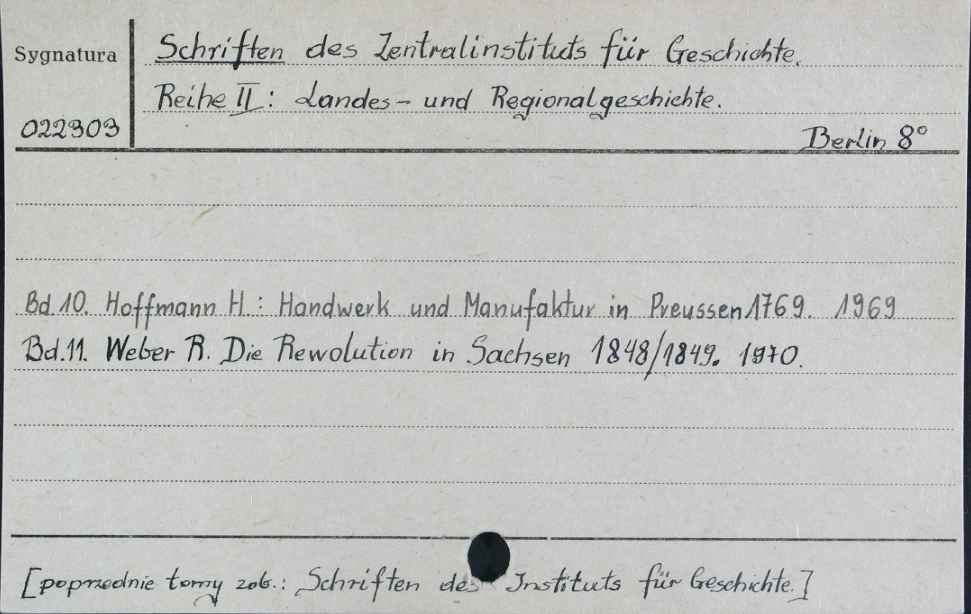 Sygnatura
Schriften des Zentralinstituts für Geschichte.
Reihe II: Landes- und Regionalgeschichte.
022303
Berlin 8°
Bd 10. Hoffmann H.: Handwerk und Manufaktur in Preussen 1769. 1969
Bd.11. Weber R. Die Rewolution in Sachsen 1848/1849. 1970.
[poprzednie tomy zob.: Schriften des Instituts für Geschichte.]